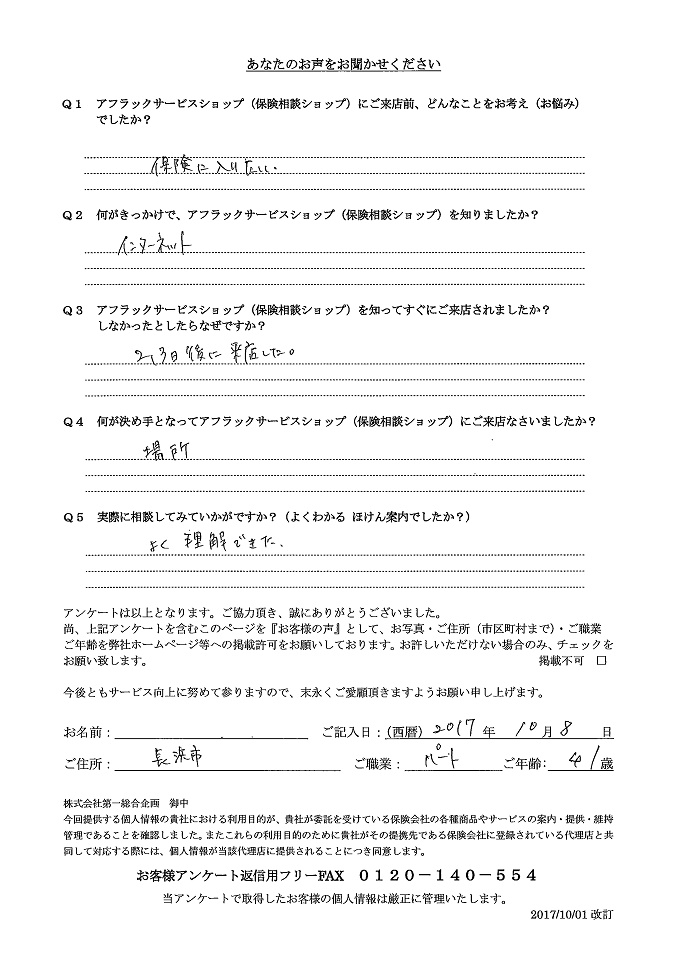 あなたのお声をお聞かせください
Q1 アフラックサービスショップ（保険相談ショップ）にご来店前、どんなことをお考え（お悩み）
でしたか？
保険に入りたい.
Q2 何がきっかけで、アフラックサービスショップ（保険相談ショップ）を知りましたか？
インターネット
Q3 アフラックサービスショップ（保険相談ショップ）を知ってすぐにご来店されましたか？
しなかったとしたらなぜですか？
2,3日後に来店した。
Q4 何が決め手となってアフラックサービスショップ（保険相談ショップ）にご来店なさいましたか？
場所
Q5 実際に相談してみていかがですか？（よくわかる ほけん案内でしたか？）
よく 理解できた、
アンケートは以上となります。ご協力頂き、誠にありがとうございました。
尚、上記アンケートを含むこのページを『お客様の声』として、お写真・ご住所（市区町村まで）・ご職業
ご年齢を弊社ホームページ等への掲載許可をお願いしております。お許しいただけない場合のみ、チェックを
お願い致します。 掲載不可 □
今後ともサービス向上に努めて参りますので、末永くご愛顧頂きますようお願い申し上げます。
お名前： ご記入日：（西暦） 2017 年 10 月 8 日
ご住所： 長浜市 ご職業： パート ご年齢： 41 歳
株式会社第一総合企画 御中
今回提供する個人情報の貴社における利用目的が、貴社が委託を受けている保険会社の各種商品やサービスの案内・提供・維持
管理であることを確認しました。またこれらの利用目的のために貴社がその提携先である保険会社に登録されている代理店と共
同して対応する際には、個人情報が当該代理店に提供されることにつき同意します。
お客様アンケート返信用フリーFAX 0120－140－554
当アンケートで取得したお客様の個人情報は厳正に管理いたします。
2017/10/01 改訂